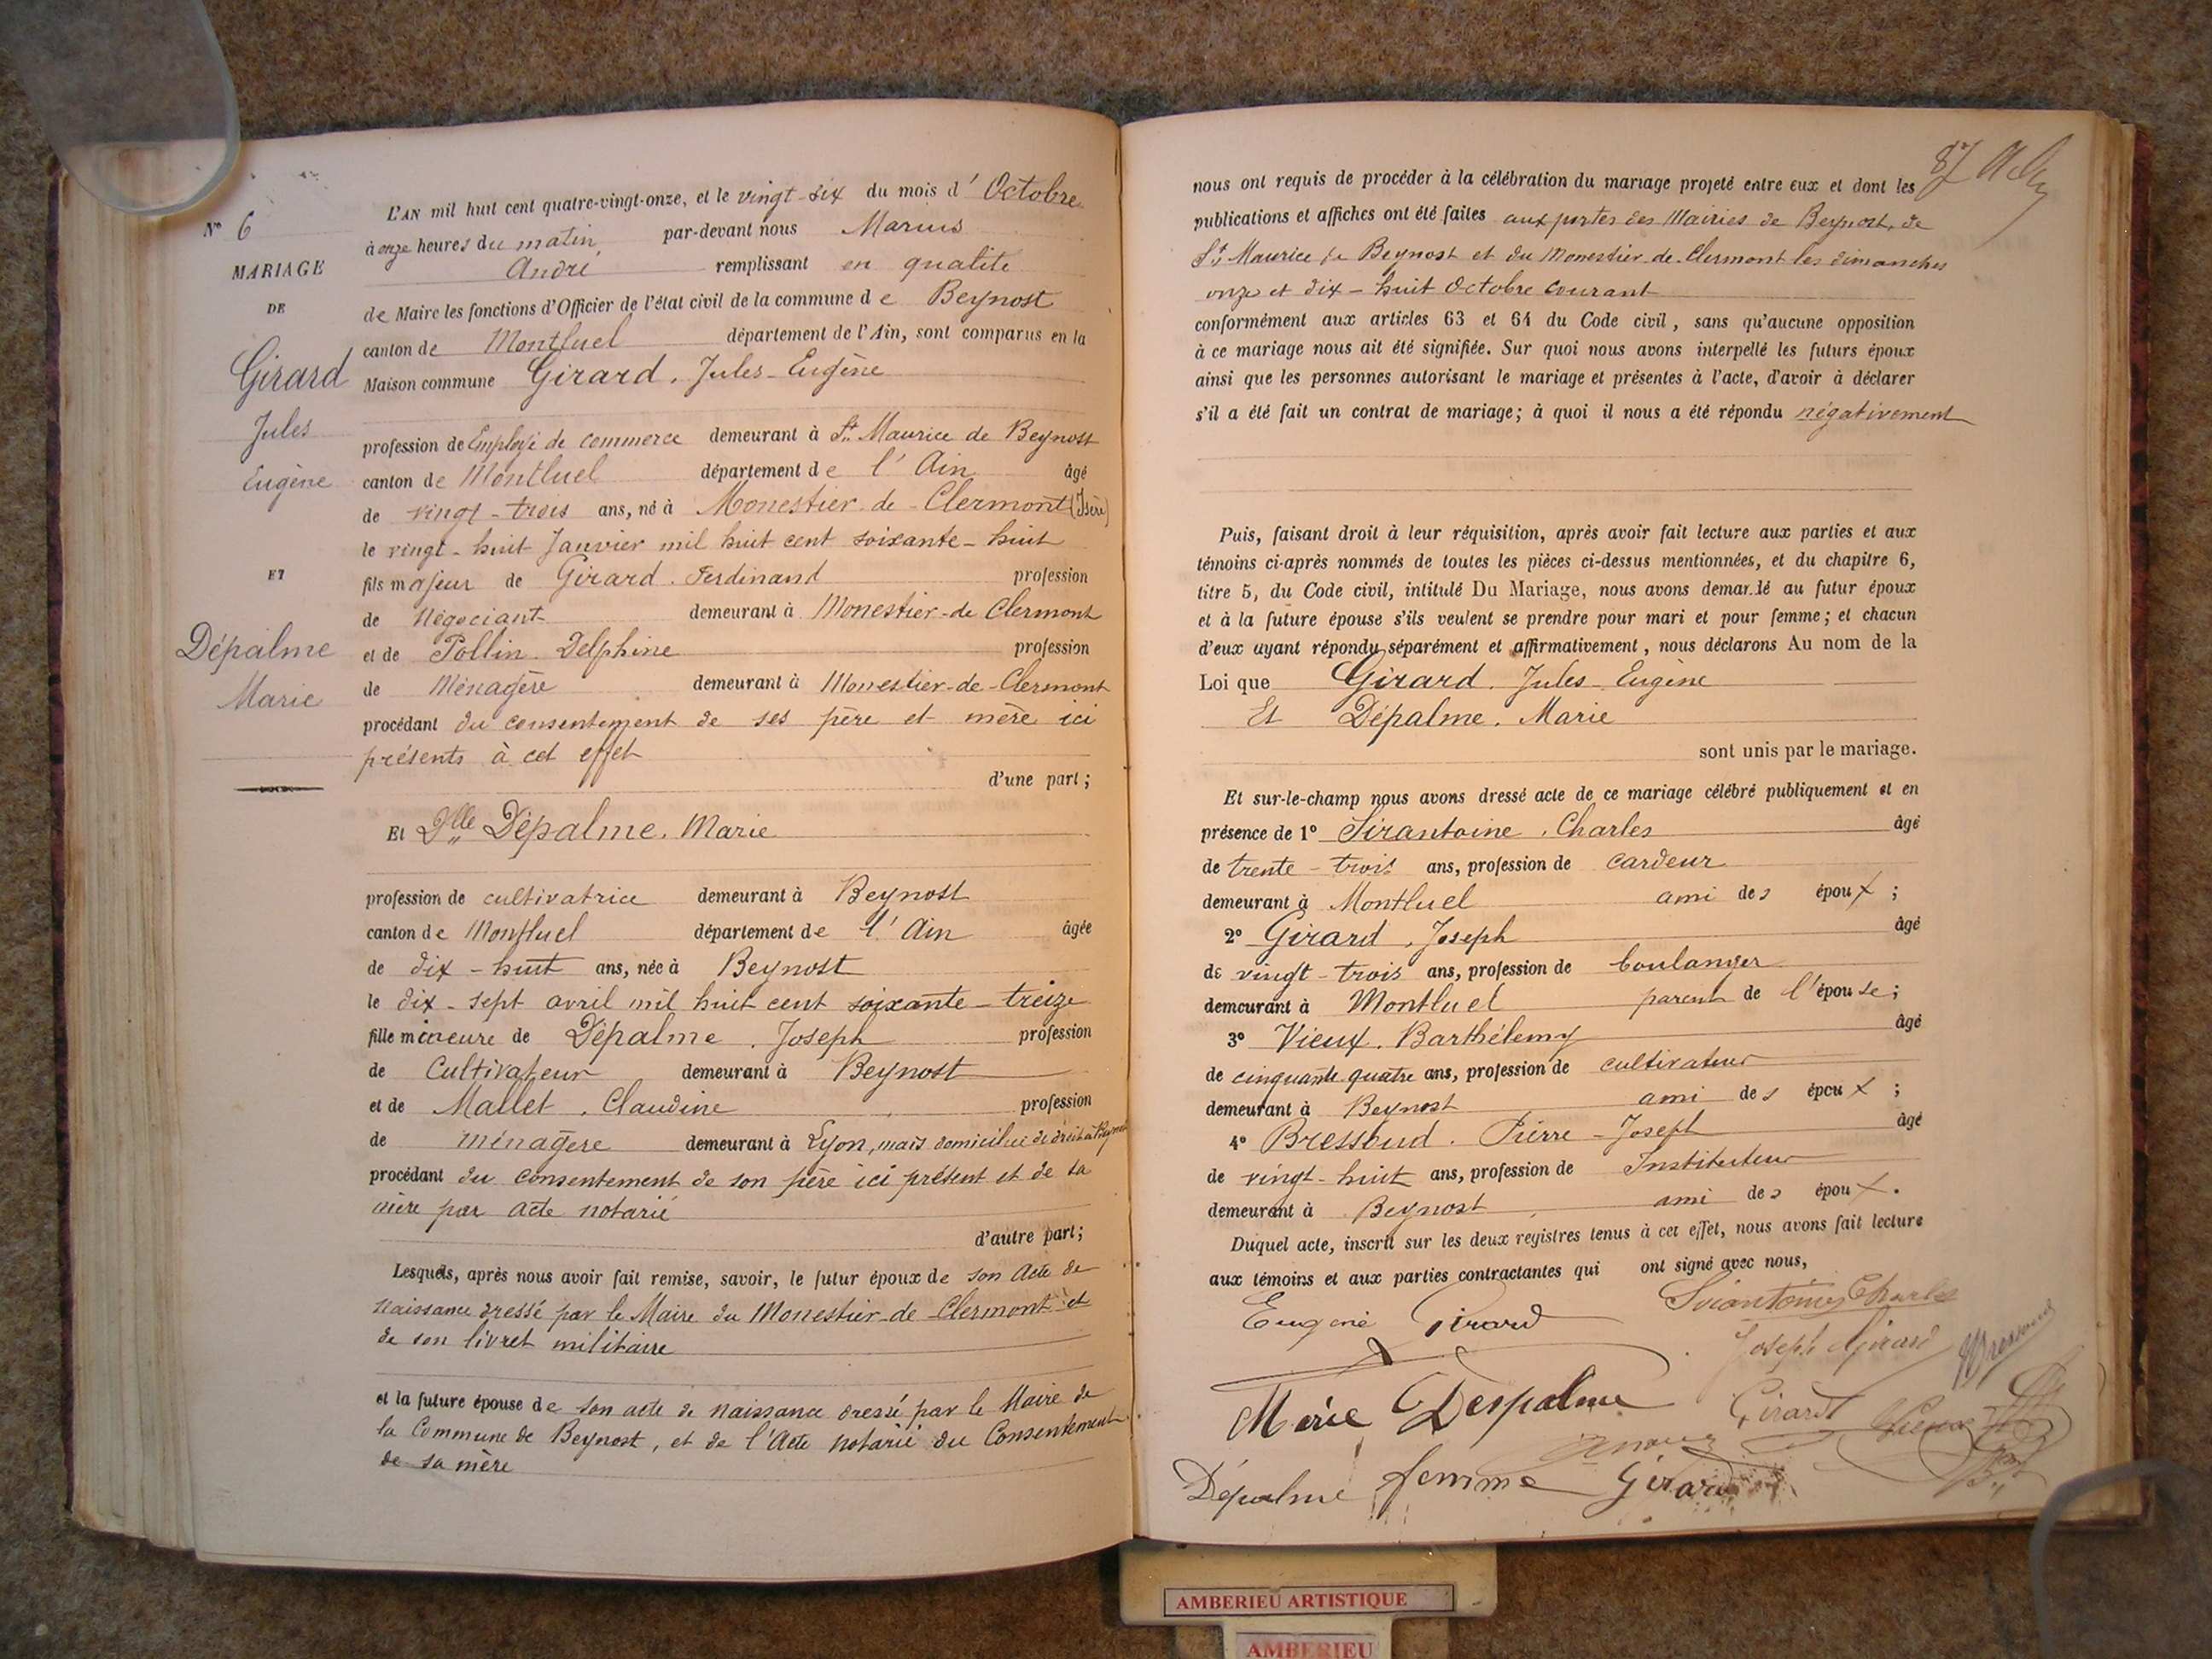 N° 6
MARIAGE
DE
Girard
Jules
Eugène
ET
Dépalme
Marie
L'AN mil huit cent quatre-vingt-onze, et le vingt-six du mois d'Octobre
à onze heures du matin par-devant nous Marius
André remplissant en qualité
de Maire les fonctions d'Officier de l'état civil de la commune de Beynost
canton de Montluel département de l'Ain, sont comparus en la
Maison commune Girard. Jules-Eugène
profession de Employé de commerce demeurant à St Maurice de Beynost
canton de Montluel département de l'Ain âgé
de vingt-trois ans, né à Monestier-de-Clermont (Isère)
le vingt-huit Janvier mil huit cent soixante-huit
fils majeur de Girard. Ferdinand profession
de Négociant demeurant à Monestier-de Clermont
et de Pollin. Delphine profession
de Ménagère demeurant à Monestier-de-Clermont
procédant du consentement de ses père et mère ici
présents à cet effet
d'une part;
Et Dlle Dépalme. Marie
profession de cultivatrice demeurant à Beynost
canton de Montluel département de l'Ain âgée
de dix-huit ans, née à Beynost
le dix-sept avril mil huit cent soixante-treize
fille mineure de Dépalme. Joseph profession
de Cultivateur demeurant à Beynost
et de Mallet. Claudine profession
de ménagère demeurant à Lyon, mais domiciliée de droit à Beynost
procédant du consentement de son père ici présent et de sa
mère par acte notarié
d'autre part;
Lesquels, après nous avoir fait remise, savoir, le futur époux de son Acte de
naissance dressé par le Maire du Monestier-de-Clermont et
de son livret militaire
et la future épouse de son acte de naissance dressé par le Maire de
la Commune de Beynost, et de l'Acte notarié du Consentement
de sa mère
87
nous ont requis de procéder à la célébration du mariage projeté entre eux et dont les
publications et affiches ont été faites aux portes des Mairies de Beynost, de
St Maurice de Beynost et du Monestier-de-Clermont les dimanches
onze et dix-huit Octobre courant
conformément aux articles 63 et 64 du Code civil, sans qu'aucune opposition
à ce mariage nous ait été signifiée. Sur quoi nous avons interpellé les futurs époux
ainsi que les personnes autorisant le mariage et présentes à l'acte, d'avoir à déclarer
s'il a été fait un contrat de mariage; à quoi il nous a été répondu négativement
Puis, faisant droit à leur réquisition, après avoir fait lecture aux parties et aux
témoins ci-après nommés de toutes les pièces ci-dessus mentionnées, et du chapitre 6,
titre 5, du Code civil, intitulé Du Mariage, nous avons demandé au futur époux
et à la future épouse s'ils veulent se prendre pour mari et pour femme; et chacun
d'eux ayant répondu séparément et affirmativement, nous déclarons Au nom de la
Loi que Girard. Jules-Eugène
Et Dépalme. Marie
sont unis par le mariage.
Et sur-le-champ nous avons dressé acte de ce mariage célébré publiquement et en
présence de 1° Sirantoine. Charles âgé
de trente-trois ans, profession de cardeur
demeurant à Montluel ami des époux;
2° Girard. Joseph âgé
de vingt-trois ans, profession de boulanger
demeurant à Montluel parent de l'épouse;
3° Vieux. Barthélemy âgé
de cinquante quatre ans, profession de cultivateur
demeurant à Beynost ami des époux;
4° Bressoud. Pierre-Joseph âgé
de vingt-huit ans, profession de Instituteur
demeurant à Beynost ami des époux.
Duquel acte, inscrit sur les deux registres tenus à cet effet, nous avons fait lecture
aux témoins et aux parties contractantes qui ont signé avec nous,
Eugène Girard Sirantoine Charles
Joseph Girard
Marie Despalme Girard Vieux
Dépalme femme Girard
AMBERIEU ARTISTIQUE
AMBERIEU